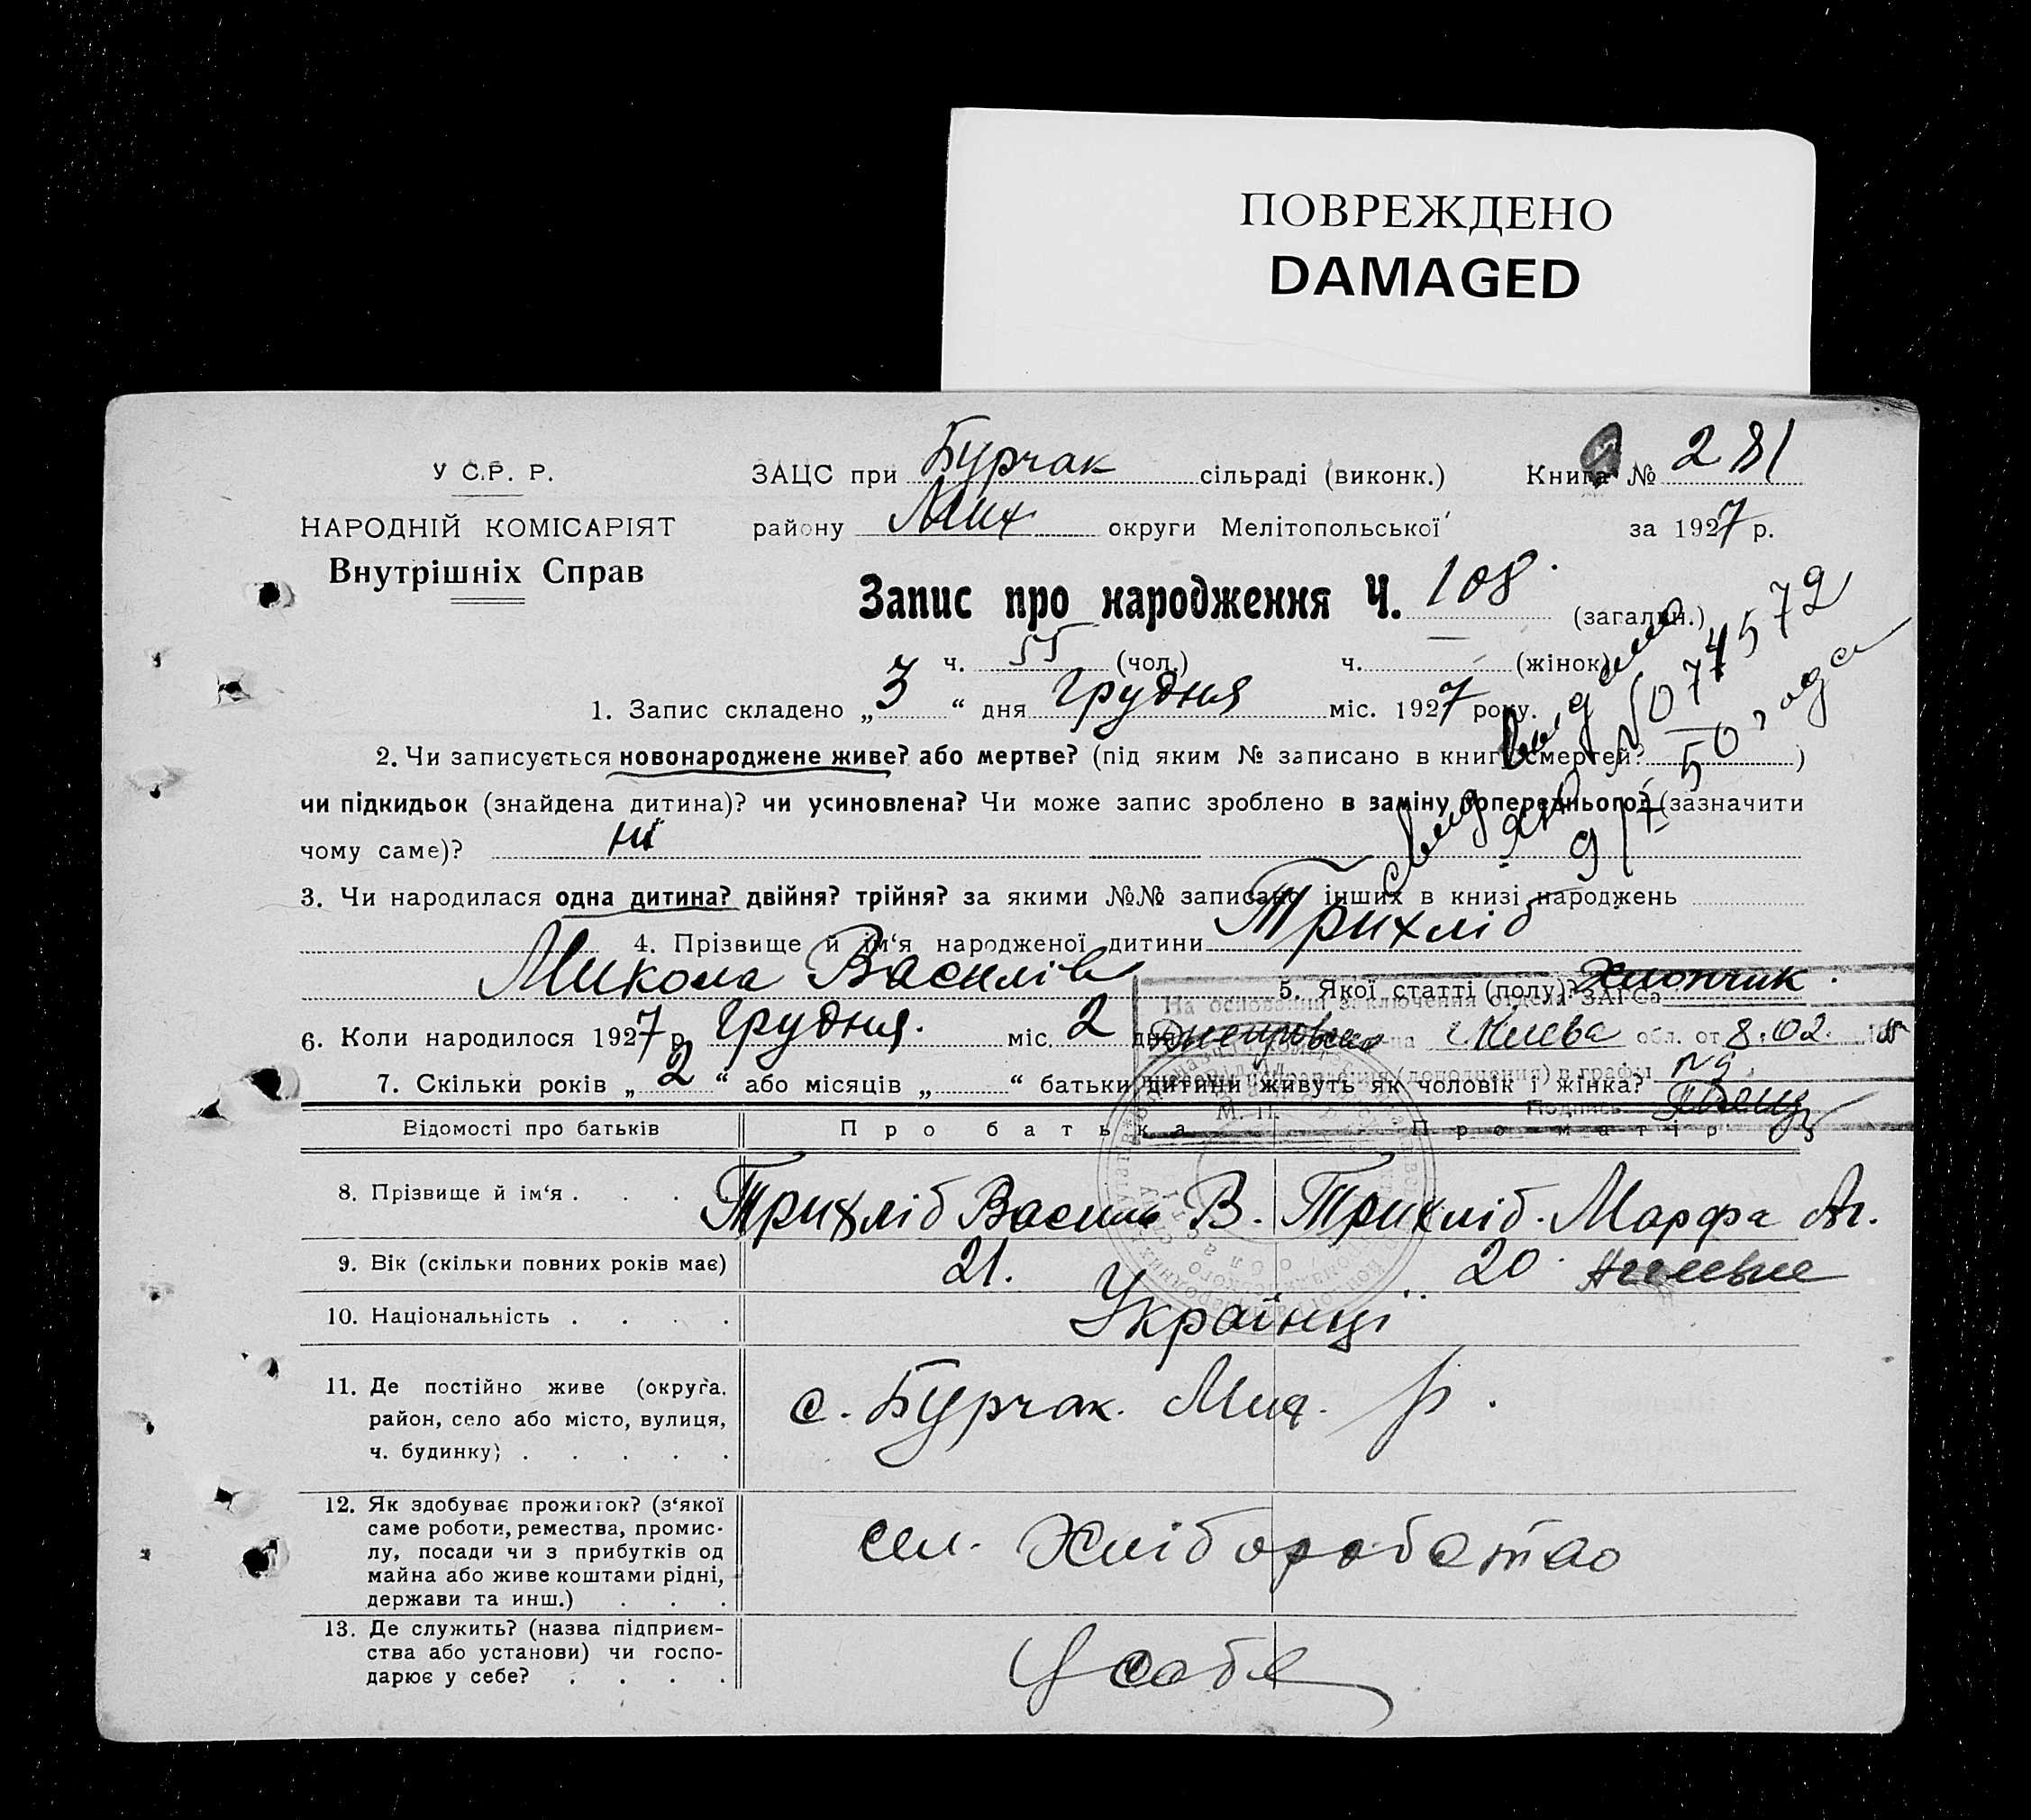 ПОВРЕЖДЕНО
DAMAGED
У С.Р. Р.
НАРОДНІЙ КОМІСАРІЯТ
Внутрішніх Справ
ЗАЦС при Бурчак сільраді (виконк.)
Книга № 281
району Мих округи Мелітопольської
за 1927 р.
Запис про народження Ч. 108. (загальн.)
ч. 55 (чол.) ч. (жінок)
1. Запис складено „3“ дня грудня міс. 1927 року.
2. Чи записується новонароджене живе? або мертве? (під яким № записано в книгі смертей? )
чи підкидьок (знайдена дитина)? чи усиновлена? Чи може запис зроблено в заміну попереднього? (зазначити
чому саме)? ні
3. Чи народилася одна дитина? двійня? трійня? за якими №№ записано інших в книзі народжень
4. Прізвище й ім‘я народженої дитини Трихліб
Микола Василів
5. Якої статті (полу)? Хлопчик.
На основании заключения отдела ЗАГСа
г Киева обл. от 8.02.
6. Коли народилося 1927 р. грудня. міс. 2 дня
7. Скільки років „2“ або місяців „ “ батьки дитини живуть як чоловік і жінка?
(дополнения) в графы №9
М. П. Подпись
Відомості про батьків Про батька Про матір
8. Прізвище й ім‘я . . . . Трихліб Василь В. Трихліб. Марфа Яг.
9. Вік (скільки повних років має) 21. 20.
10. Національність . . . . Українці
11. Де постійно живе (округа,
район, село або місто, вулиця,
ч. будинку) . . . . .
с. Бурчак. Мих. р.
12. Як здобуває прожиток? (з‘якої
саме роботи, ремества, промис-
лу, посади чи з прибутків од
майна або живе коштами рідні,
держави та инш.) . . .
сел. Хлібороботво
13. Де служить? (назва підприєм-
ства або установи) чи госпо-
дарює у себе? . . . .
У себе